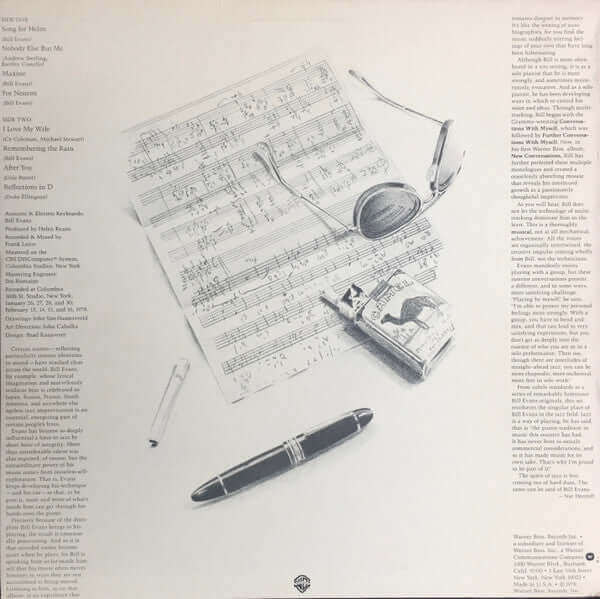 SIDE ONE
Song for Helen
(Bill Evans)
Nobody Else But Me
Maxine
(Bill Evans)
For Nenette
(Bill Evans)
SIDE TWO
I Love My Wife
(Cy Coleman, Michael Stewart)
Remembering the Rain
(Bill Evans)
After You
(Cole Porter)
Reflections in D
(Duke Ellington)
Acoustic & Electric Keyboards:
Bill Evans
Produced by Helen Keane
Recorded & Mixed by
Frank Laico
Mastered on the
CBS DISComputer™ System,
Columbia Studios, New York
Mastering Engineer:
Recorded at Columbia
30th St. Studio, New York,
January 26, 27, 28, and 30;
February 13, 14, 15, and 16, 1978.
Drawings: John Van Hamersveld
Art Direction: John Cabalka
Design: Brad Kanawyer
Certain names—reflecting
particularly intense identities
in sound—have resilient clout
across the world. Bill Evans,
for example, whose lyrical
imagination and marvelously
resilient beat is celebrated in
Japan, Russia, France, South
America, and anywhere else
ageless jazz improvisation is an
essential, energizing part of
certain people's lives.
Evans has become so deeply
influential a force in jazz by
sheer force of integrity. More
than considerable talent was
also required, of course, but the
extraordinary power of his
music comes from ceaseless self-
exploration. That is, Evans
keeps developing his technique
—and his ear—so that, as he
puts it, more and more of what's
inside him can get through his
hands onto the piano.
Precisely because of the disci-
pline Bill Evans brings to his
playing, the result is emotion-
ally penetrating. And as it is
that intended music becomes
CAMEL
Although Bill is most often
heard in a trio setting, it is as a
solo pianist that he is most
strongly, and sometimes myste-
riously, evocative. And as a solo
pianist, he has been developing
ways in which to extend his
voice and ideas. Through multi-
tracking, Bill began with the
Grammy-winning Conversa-
tions With Myself, which was
followed by Further Conversa-
tions With Myself. Now, in
his first Warner Bros. album,
New Conversations, Bill has
further perfected these multiple
monologues and created a
ceaselessly absorbing mosaic
that reveals his continued
growth as a passionately
thoughtful improviser.
As you will hear, Bill does
not let the technology of multi-
tracking dominate him in the
least. This is a thoroughly
musical, not at all mechanical,
achievement. All the voices
are organically intertwined, the
creative impulse coming wholly
from Bill, not the technicians.
Evans manifestly enjoys
playing with a group, but these
interior conversations present
a different, and in some ways,
more satisfying challenge.
"Playing by myself," he says,
"I'm able to project my personal
feelings more strongly. With a
group, you have to bend and
mix, and that can lead to very
satisfying experiences, but you
don't get as deeply into the
essence of who you are as in a
solo performance. Then too,
though there are interludes of
straight-ahead jazz, you can be
more rhapsodic, more orchestral,
more free in solo work."
From subtle standards to a
series of remarkably luminous
Bill Evans originals, this set
reinforces the singular place of
Bill Evans in the jazz field. Jazz
is a way of playing, he has said,
that is "the purest tradition in
music this country has had.
It has never bent to strictly
commercial considerations, and
so it has made music for its
own sake. That's why I'm proud
to be part of it."
The spirit of jazz is free-
coming out of hard discipline. The
same can be said of Bill Evans.
—Nat Hentoff
Warner Bros. Records Inc. •
a subsidiary and licensee of
Warner Bros. Inc., a Warner
Communications Company
3300 Warner Blvd., Burbank,
Calif. 91510 • 3 East 54th Street
New York, New York 10022 •
Made in U.S.A. • © 1978
Warner Bros. Records Inc.